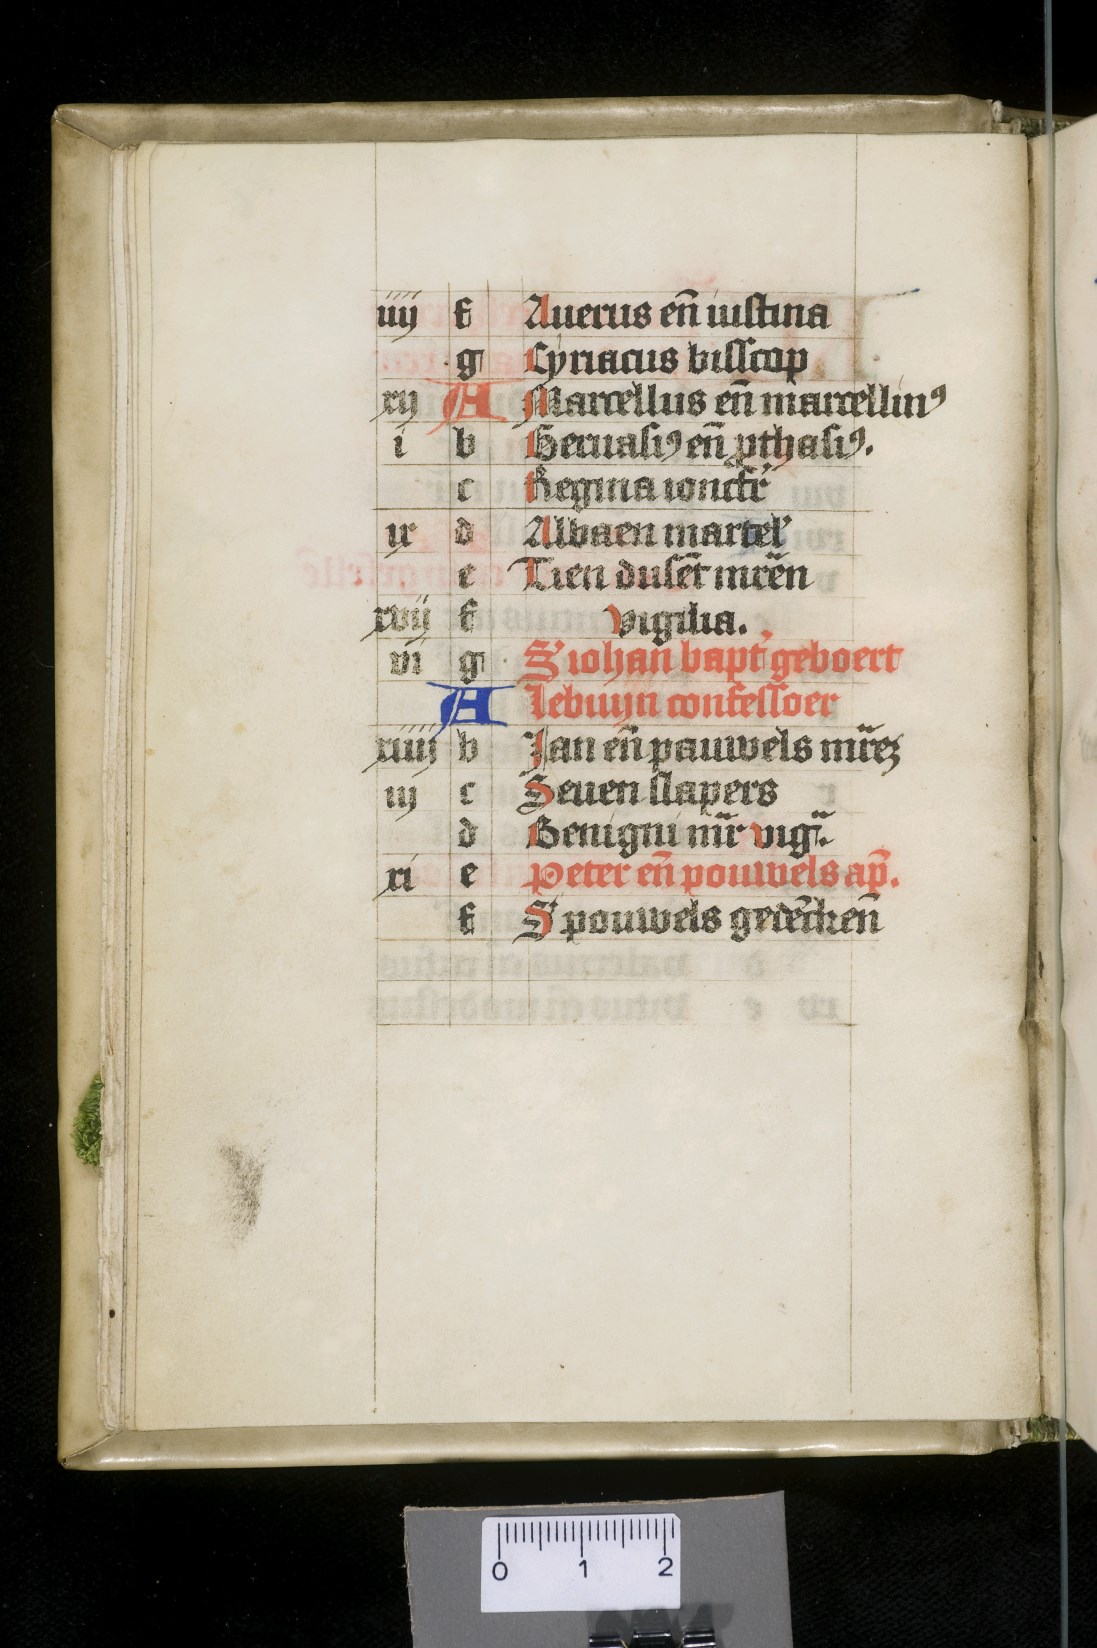 iiij f Auerus en̄ iustina
g Cyriacus bisscop
xij A Marcellus en̄ marcellinꝯ
i b Geruasiꝯ en̄ ꝓthasiꝯ.
c Regina ioncfr̕
ix d Albaen martel̕
e Tien dusēt mr̄en
xvij f Vigilia.
vi g S̕ iohan bapt̕ geboert
A lebuijn confessoer
xiiij b Jan en̄ pauwels mr̄ez
iij c Seuen slapers
d Benigni mr̄ viḡ.
xi e Peter en̄ pouwels ap̄.
f S̕ pouwels gedēcken̄
0 1 2